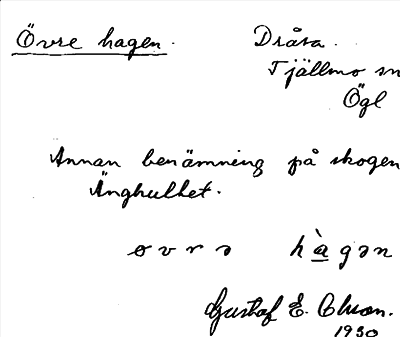 Övre hagen. Dråsa.
Tjällmo sn
Ögl
Annan benämning på skogen
Änghulhet.
øvrə hàgən
Gustaf E. Olson.
1930